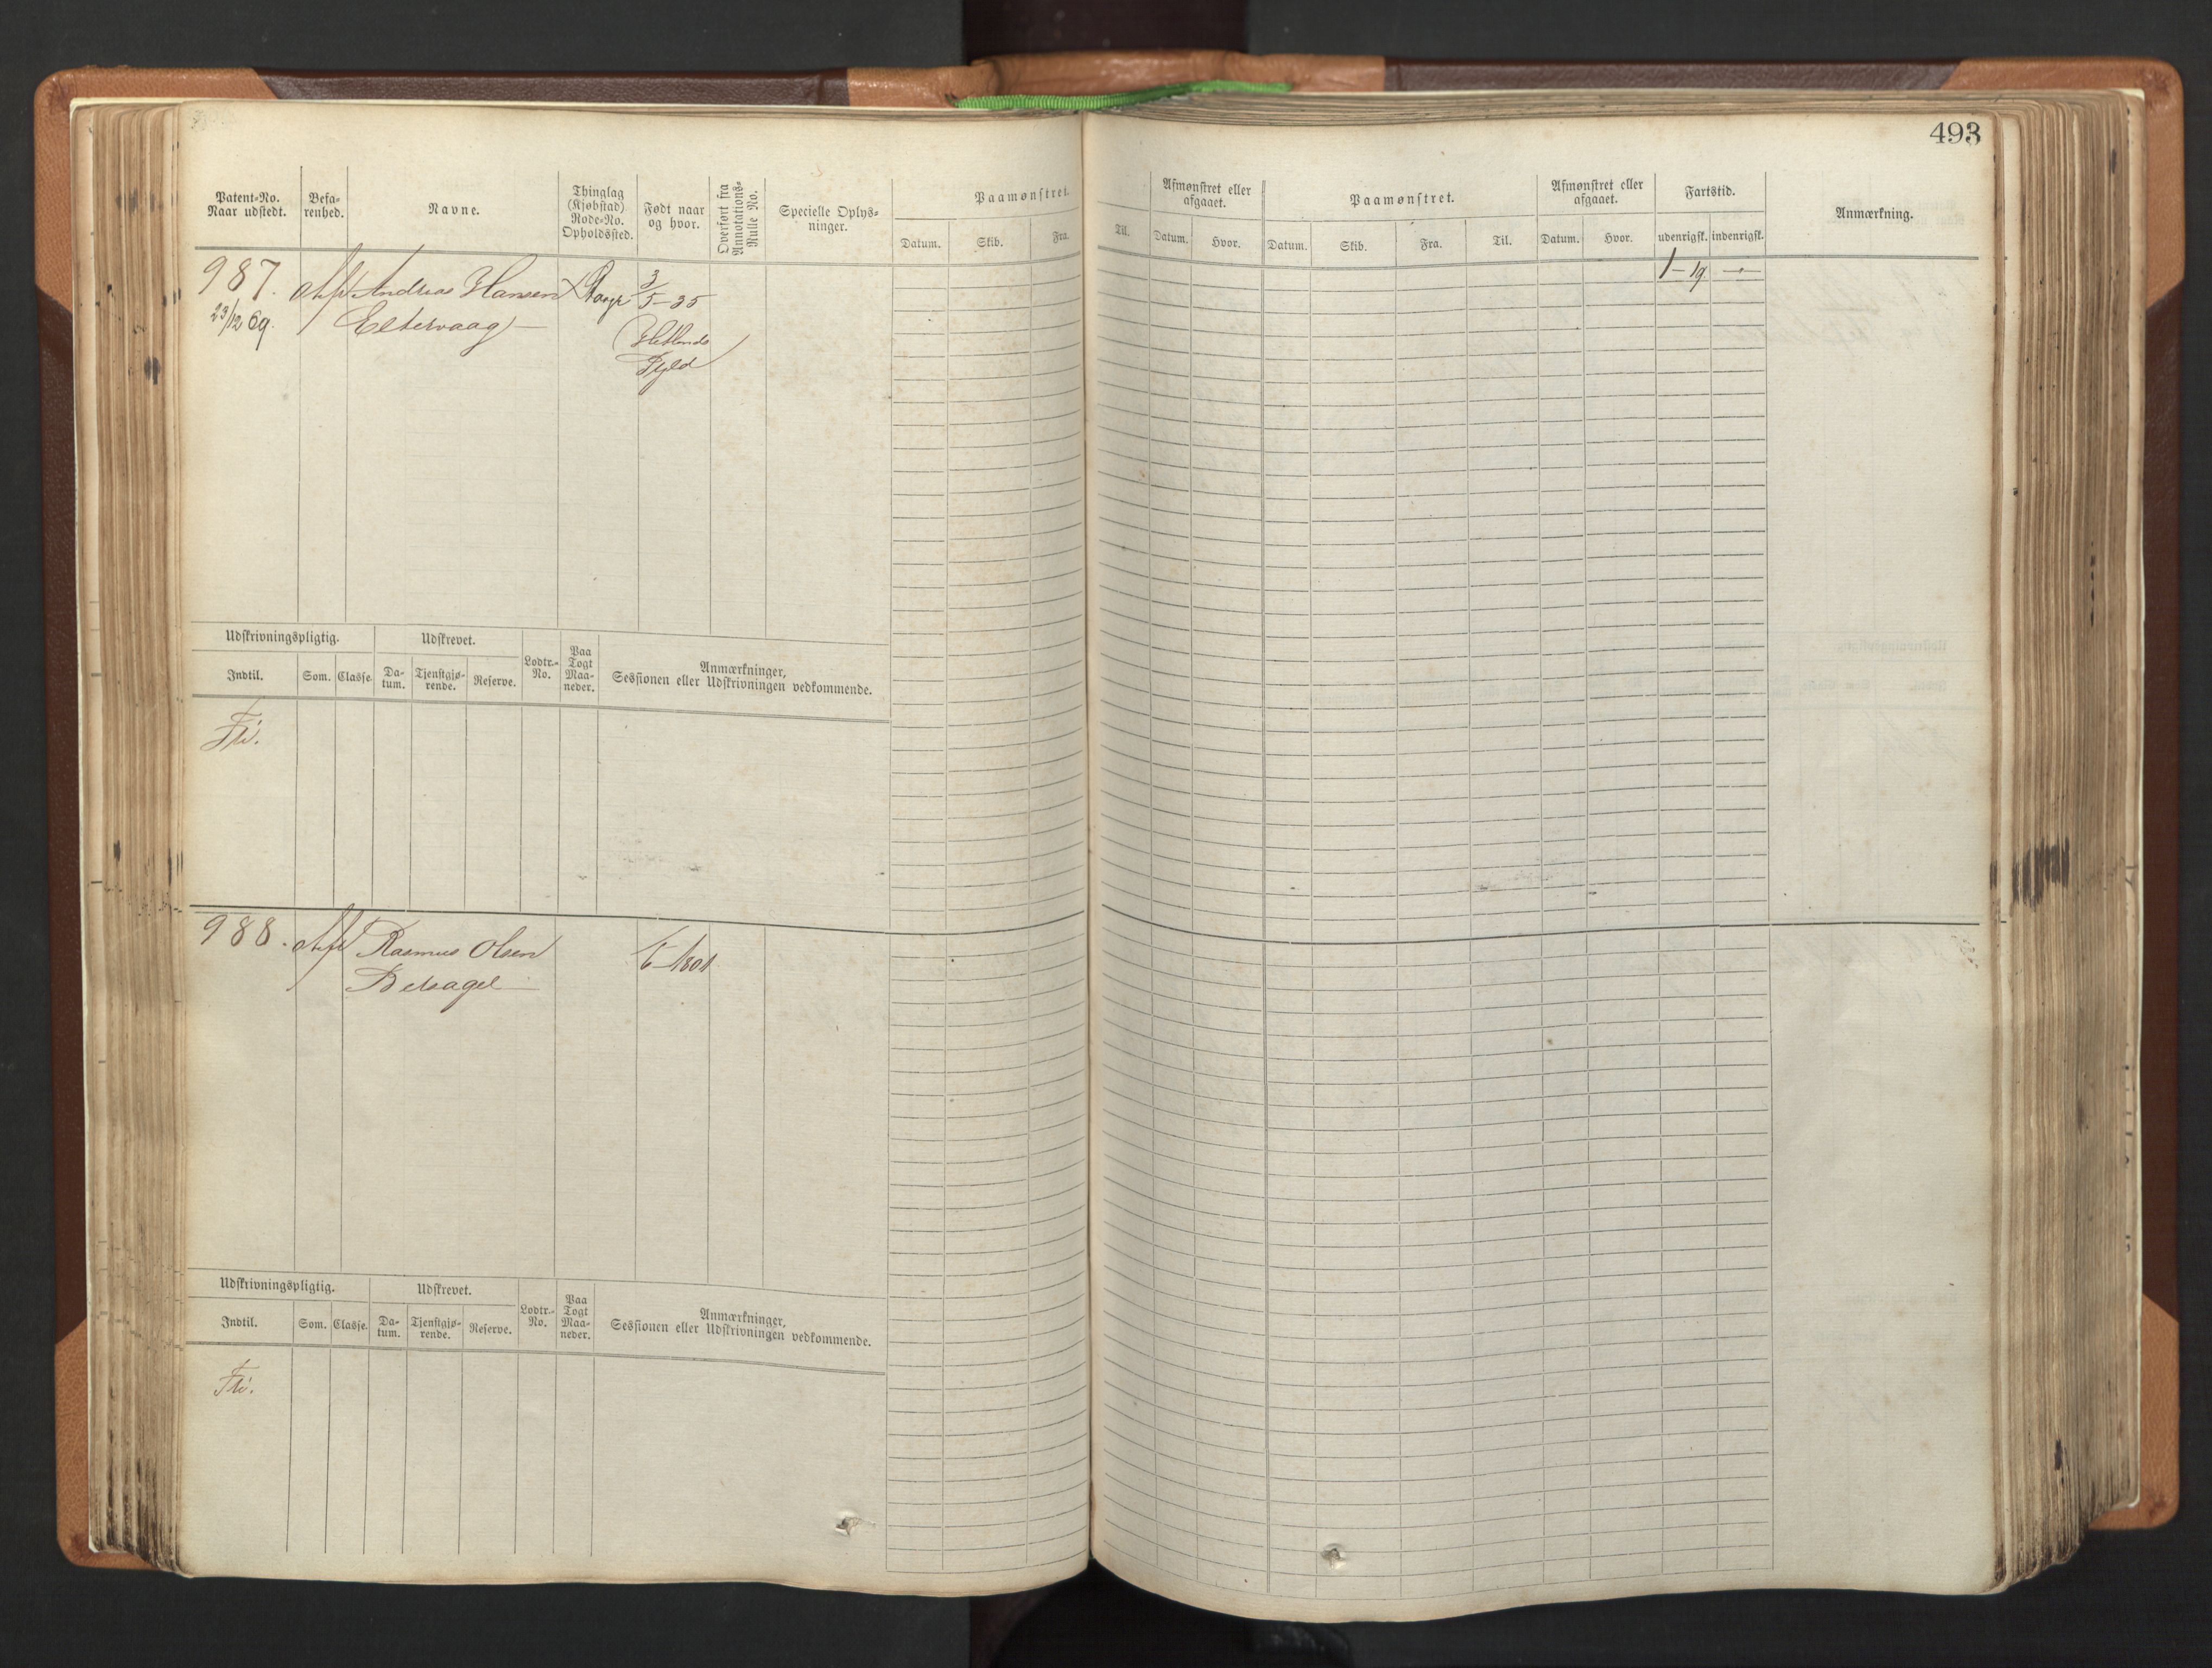 493
Patent-No.
Naar udstedt.
Befa-
renhed.
Navne.
Thinglag
(Kjøbstad)
Rode-No.
Opholdssted.
Født naar
og hvor.
Overført fra
Annotations-
Rulle No.
Specielle Oplys-
ninger.
Paamønstret.
Datum. Skib. Fra.
Til.
Afmønstret eller
afgaaet.
Datum. Hvor.
Paamønstret.
Datum. Skib. Fra. Til.
Afmønstret eller
afgaaet.
Datum. Hvor.
Fartstid.
udenrigsk. indenrigsk.
Anmærkning.
987. Andreas Hansen 3/5-35
23/12 69. Eltervaag
Hetlands
Fjeld
1-19
Udskrivningspligtig. Udskrevet.
Indtil. Som. Classe. Da-
tum. Tjenstgjø-
rende. Reserve. Lodtr.-
No. Paa
Togt
Maa-
neder.
Anmærkninger,
Sessionen eller Udskrivningen vedkommende.
Fri.
988. Rasmus Olsen
Udskrivningspligtig. Udskrevet.
Indtil. Som. Classe. Da-
tum. Tjenstgjø-
rende. Reserve. Lodtr.-
No. Paa
Togt
Maa-
neder.
Anmærkninger,
Sessionen eller Udskrivningen vedkommende.
Fri.